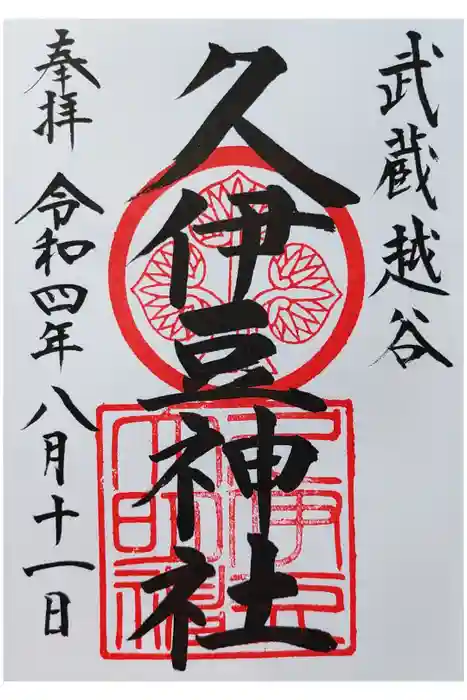 武蔵越谷
久伊豆神社
奉拝
令和四年八月十一日